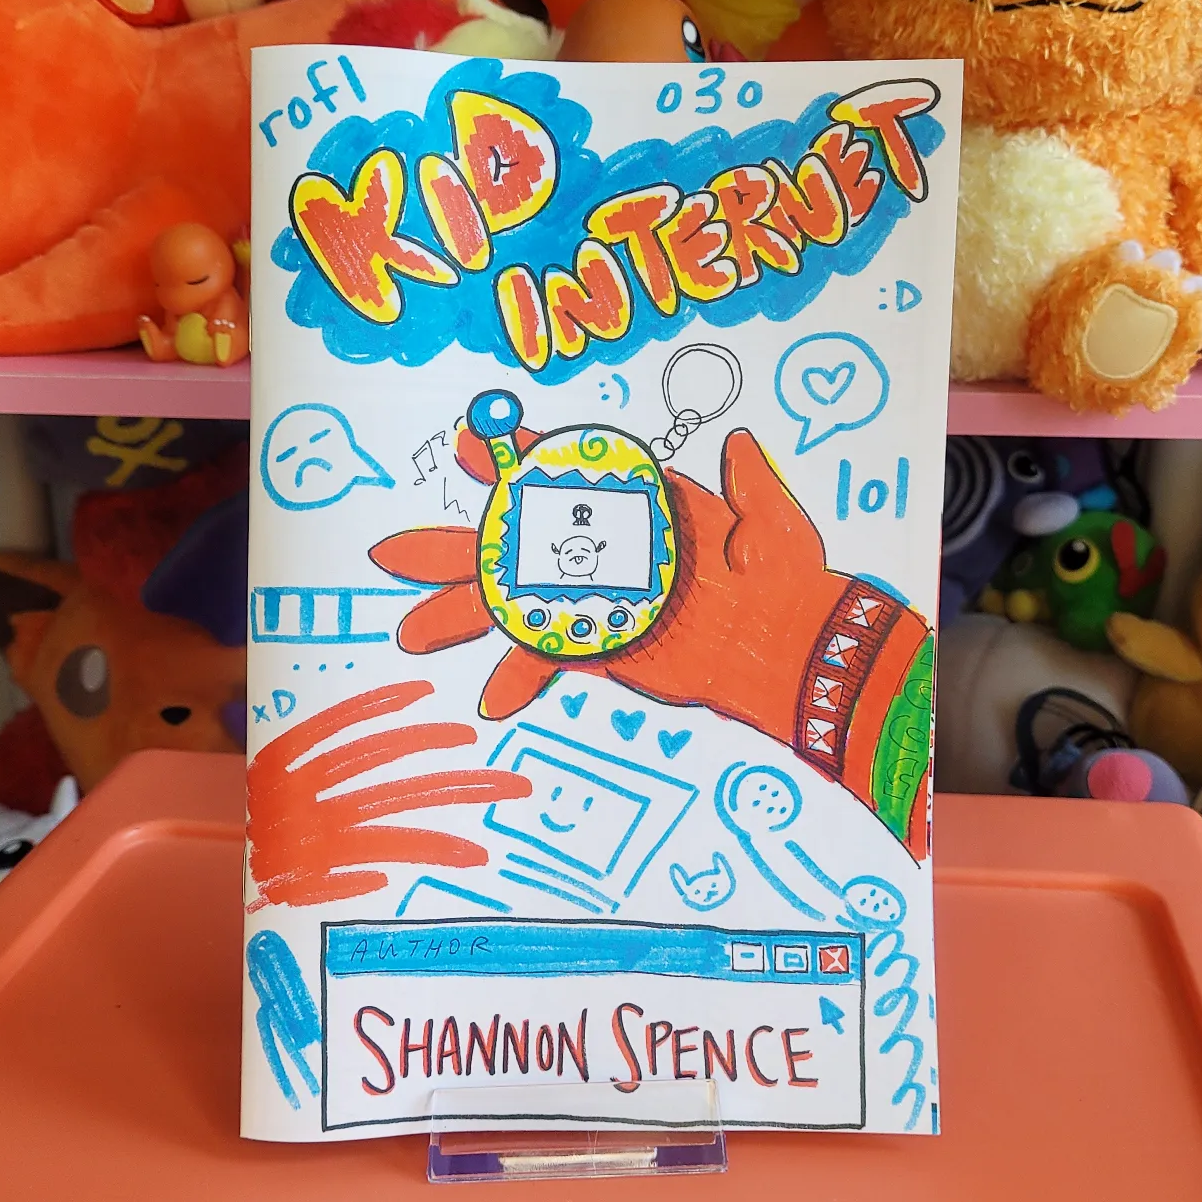 rofl
030
KID
INTERNET
:D
:)
lol
...
xD
AUTHOR
SHANNON SPENCE